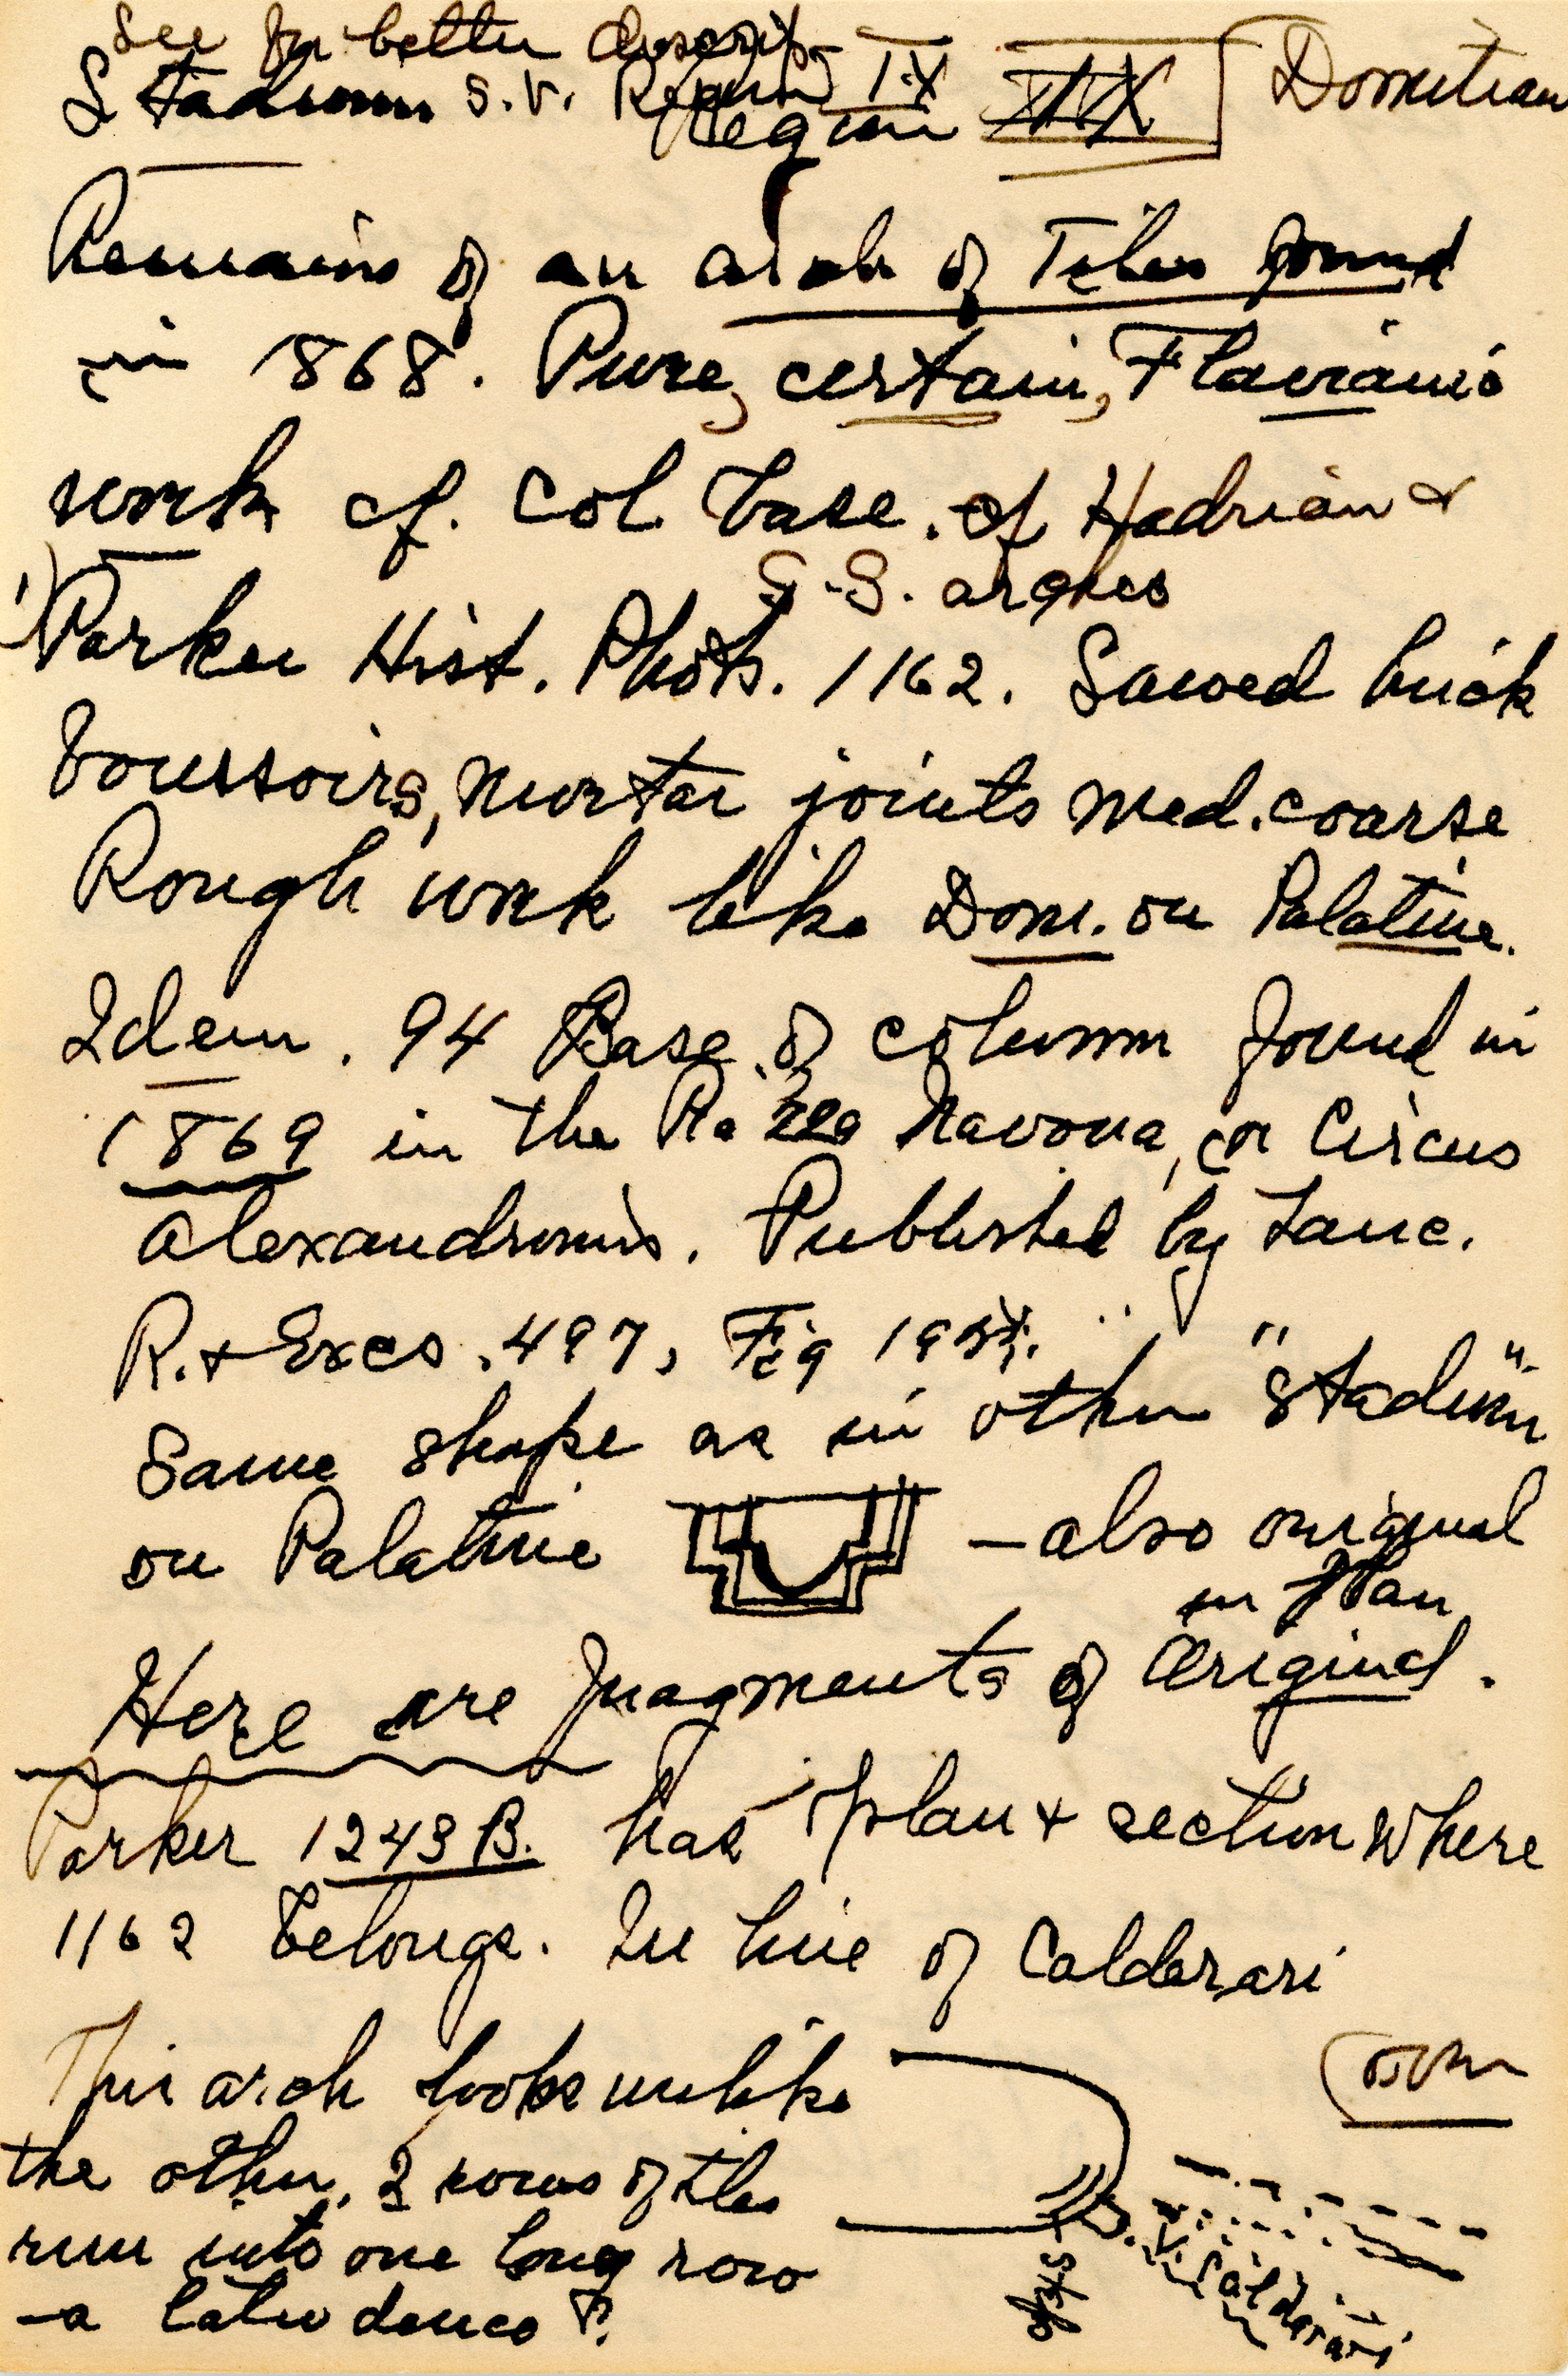 See for better descript.
Stadium s.v. Region IX Domitian
Region
Remains of an arch of Tiles found
in 1868. Pure, certain, Flavian
work cf. Col base. of Hadrian &
S.S. arches
1) Parker Hist. Phot. 1162. Sawed brick
voussoirs, Mortar joints med. coarse
Rough work like Dom. on Palatine.
Idem. 94 Base of column found in
1869 in the Piazza Navona, or Circus
Alexandrinus. Published by Lanc.
R. & Excs. 497, Fig
Same shape as in other "Stadium"
on Palatine - also original
in plan
Here are fragments of Original.
Parker 1243 B. has plan & section where
1162 belongs. In line of Calderari
This arch looks unlike
the other. 2 rows of tiles
run into one long row
-a later
V. Calderari